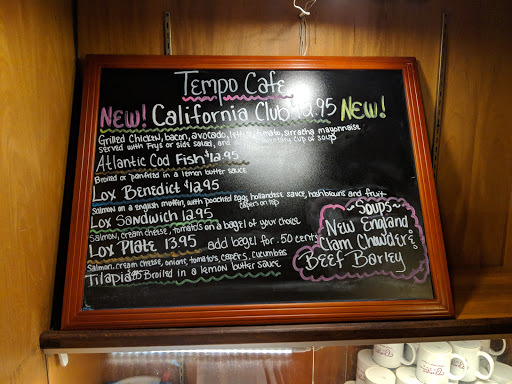 Tempo Cafe
NEW! California Club 12.95 NEW!
Grilled Chicken, bacon, avocado, lettuce, tomato, sirracha mayonnaise
served with Frys or side salad, and cup of soup
Atlantic Cod Fish $12.95
Broiled or panfried in a lemon butter sauce
Lox Benedict $12.95
Salmon on a english muffin, with poached eggs, hollandies sauce, hashbrowns and fruit
capers on top
Lox Sandwich 12.95
Salmon, cream cheese, tomatoes on a bagel of your choise
Lox Plate 13.95 add bagel for .50 cents
Salmon, cream cheese, onions, tomato's, capers, cucumbas
Tilapia Broiled in a lemon butter sauce
~Soups~
New England
Clam Chowder
Beef Barley